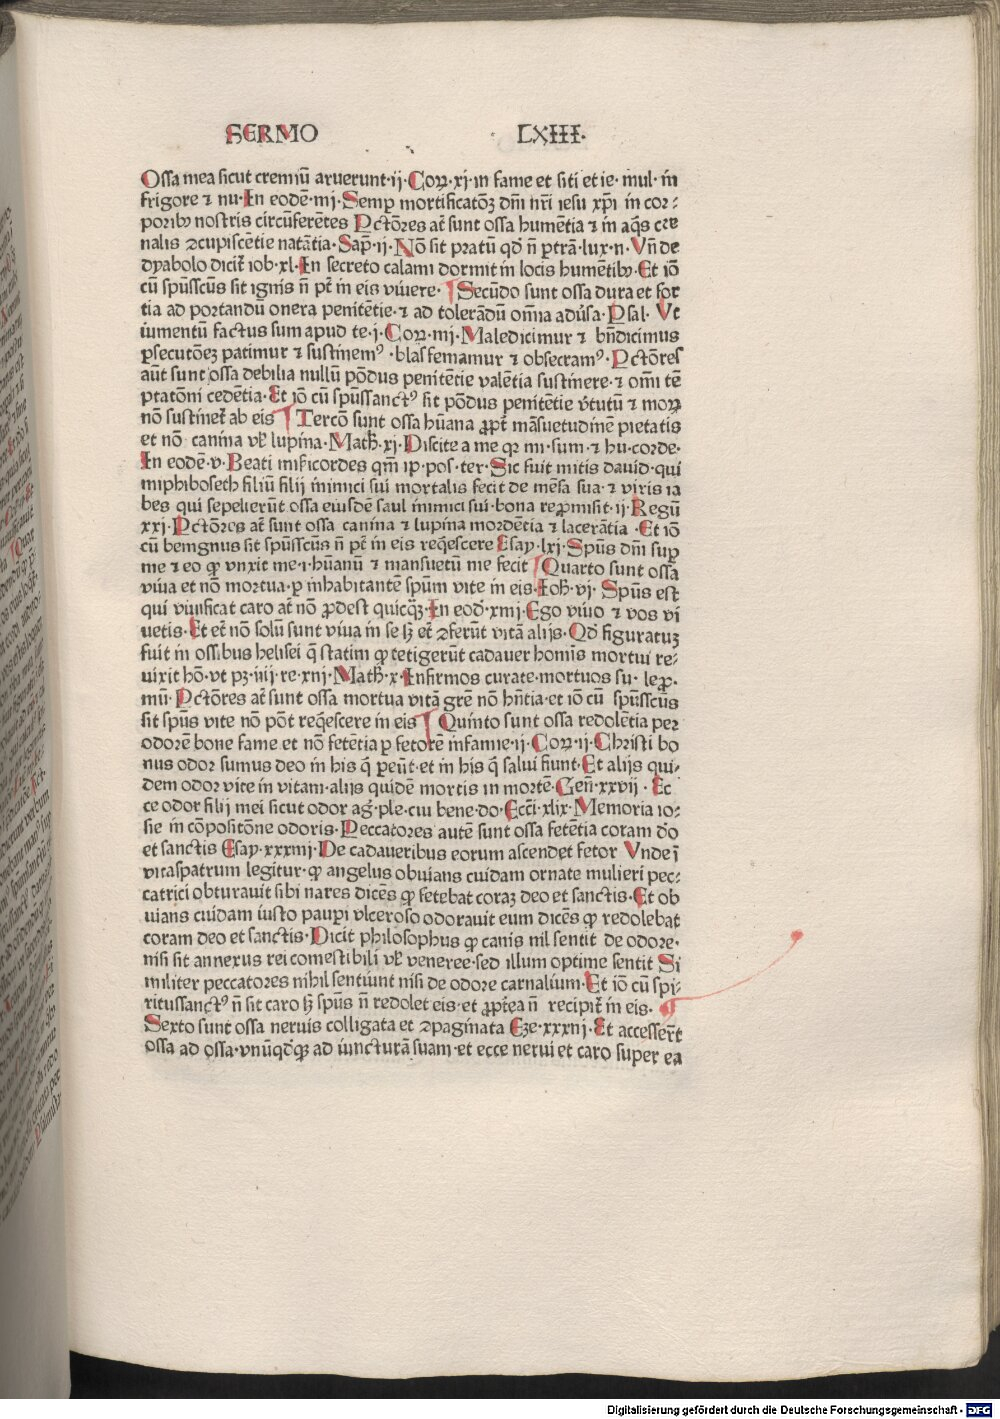 SERMO LXIII·
Ossa mea sicut cremiū aruerunt·ij·Coꝝ·xj·in fame et siti et ie·mul·in
frigore ⁊ nu·In eodē·iiij·Semꝑ mortificatōꝫ dn̄i nr̄i iesu xp̄i in cor⸗
poribꝫ nostris circūferētes Pctōres at̄ sunt ossa humētia ⁊ in aq̄s cre
nalis ꝯcupiscētie natātia·Sap̄·ij·Nō sit pratū qd̄ n̄ ꝑtrā·lux·n·Vn̄ de
dyabolo dicit̄ iob·xl·In secreto calami dormit in locis humētibꝫ·Et iō
cū spūsscūs sit ignis n̄ pt̄ in eis viuere·¶Secūdo sunt ossa dura et for
tia ad portandū onera penitētie·⁊ ad tolerādū om̄ia adūsa·Psal·Vt
iumentū factus sum apud te·j·Coꝝ·iiij·Maledicimur ⁊ bn̄dicimus
ꝑsecutōeꝫ patimur ⁊ sustinemꝰ·blasfemamur ⁊ obsecramꝰ·Pctōres
aūt sunt ossa debilia nullū pōdus penitētie valētia sustinere·⁊ om̄i tē
ptatōni cedētia·Et iō cū spūssanctꝰ sit pōdus penitētie v̄tutū ⁊ moꝝ
nō sustinet̄ ab eis ¶Tercō sunt ossa hūana ꝓpt̄ māsuetudinē pietatis
et nō canina vł lupina·Matħ·xj·Discite a me qꝛ mi·sum·⁊ hu·corde·
In eodē·v·Beati mīsicordes qm̄ ip·pos·ter·Sic fuit mitis dauid·qui
miphiboseth filiū filij inimici sui mortalis fecit de mēsa sua·⁊ viris ia
bes qui sepelierūt ossa eiusdē saul inimici sui·bona repromisit·ij·Regū
xxj·Pctōres at̄ sunt ossa canina ⁊ lupina mordētia ⁊ lacerātia·Et iō
cū benignus sit spūsscūs n̄ pt̄ in eis req̄escere Esay·lxj·Spūs dn̄i suꝑ
me ⁊ eo ꝙ vnxit me·i·hūanū ⁊ mansuetū me fecit ¶Quarto sunt ossa
viua et nō mortua·ꝑ inhabitantē spūm vite in eis·Ioħ·vj·Spūs est
qui viuificat caro at̄ nō ꝓdest quicqꝫ·In eod̄·xiiij·Ego viuo ⁊ vos vi
uetis·Et et̄ nō solū sunt viua in se sꝫ et̄ ꝯferūt vitā alijs·Qd̄ figuratuꝫ
fuit in ossibus helisei q̄ statim ꝙ tetigerūt cadauer hominis mortui re⸗
uixit hō·vt pꝫ·iiij·re·xiij·Matħ·x·Infirmos curate·mortuos su·lepꝛ·
mū·Pctōres at̄ sunt ossa mortua vitā gr̄e nō hn̄tia·et iō cū spūsscūs
sit spūs vite nō pōt req̄escere in eis ¶Quinto sunt ossa redolētia per
odorē bone fame et nō fetētia ꝑ fetorē infamie·ij·Coꝝ·ij·Christi bo
nus odor sumus deo in his q̄ ꝑeūt·et in his q̄ salui fiunt·Et alijs qui⸗
dem odor vite in vitam·alijs quidē mortis in mortē·Gen̄·xxvij·Ec
ce odor filij mei sicut odor ag̓·ple·cui bene·do·Ecc̄i·xlix·Memoria io⸗
sie in cōpositōne odoris·Peccatores autē sunt ossa fetētia coram dō
et sanctis Esay·xxxiiij·De cadaueribus eorum ascendet fetor Vnde ī
vitaspatrum legitur·ꝙ angelus obuians cuidam ornate mulieri pec⸗
catrici obturauit sibi nares dicēs ꝙ fetebat coraꝫ deo et sanctis·Et ob
uians cuidam iusto pauꝑi vlceroso odorauit eum dicēs ꝙ redolebat
coram deo et sanctis·Dicit philosophus ꝙ canis nil sentit de odore·
nisi sit annexus rei comestibili vł veneree·sed illum optime sentit Si
militer peccatores nihil sentiunt nisi de odore carnalium·Et iō cū spi⸗
ritussanctꝰ n̄ sit caro sꝫ spūs n̄ redolet eis·et ꝓpt̄ea n̄ recipit̄ in eis·¶
Sexto sunt ossa neruis colligata et ꝯpaginata Eze·xxxvij·Et accesserūt
ossa ad ossa·vnūqd̄qꝫ ad iuncturā suam·et ecce nerui et caro super ea
Digitalisierung gefördert durch die Deutsche Forschungsgemeinschaft - DFG